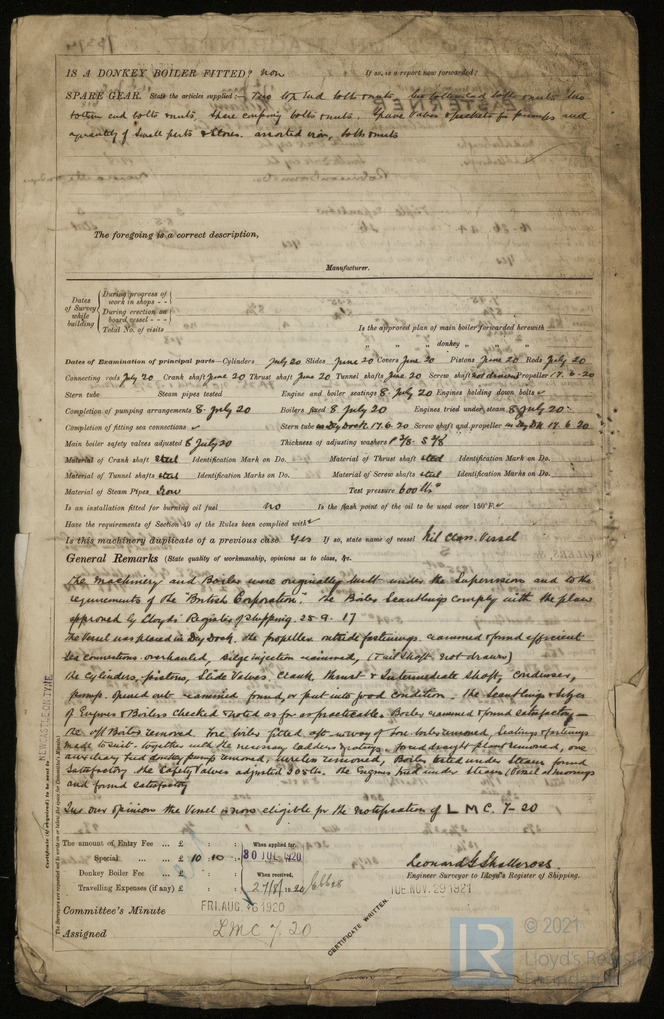 IS A DONKEY BOILER FITTED? non If so, is a report now forwarded?
SPARE GEAR. State the articles supplied:— Two top end bolts & nuts, two bottom end bolts & nuts, two
bolts & nuts, Spare coupling bolts & nuts. Spare Valves & for pumps and
a quantity of Small parts & Stores. assorted iron, bolts & nuts
The foregoing is a correct description,
Manufacturer.
Dates of Survey while building
During progress of work in shops - -
During erection on board vessel - - -
Total No. of visits
Is the approved plan of main boiler forwarded herewith
" " " donkey " " "
Dates of Examination of principal parts—Cylinders July 20 Slides June 20 Covers June 20 Pistons June 20 Rods July 20
Connecting rods July 20 Crank shaft June 20 Thrust shaft June 20 Tunnel shafts June 20 Screw shaft not drawn Propeller 17.6.20
Stern tube Steam pipes tested Engine and boiler seatings 8 July 20 Engines holding down bolts ✓
Completion of pumping arrangements 8 July 20 Boilers fixed 8 July 20 Engines tried under steam 8 July 20
Completion of fitting sea connections ✓ Stern tube in Dry Dock 17.6.20 Screw shaft and propeller in Dry Dk 17.6.20
Main boiler safety valves adjusted 8 July 20 Thickness of adjusting washers
Material of Crank shaft steel Identification Mark on Do. Material of Thrust shaft steel Identification Mark on Do.
Material of Tunnel shafts steel Identification Marks on Do. Material of Screw shafts steel Identification Marks on Do.
Material of Steam Pipes Iron Test pressure 600 lbs
Is an installation fitted for burning oil fuel no Is the flash point of the oil to be used over 150°F. ✓
Have the requirements of Section 49 of the Rules been complied with ✓
Is this machinery duplicate of a previous case Yes If so, state name of vessel Kil Class Vessel
General Remarks (State quality of workmanship, opinions as to class, &c.
The Machinery and Boilers were originally built under the Supervision and to the
requirements of the "British Corporation". The Boiler Scantlings comply with the plan
approved by Lloyds' Register of Shipping 25.9.17
The Vessel was placed in Dry Dock. The propeller outside fastenings examined & found efficient
Sea Connections overhauled, bilge injection examined, (Tail Shaft not drawn)
The Cylinders, pistons, Slide Valves, Crank, Thrust & Intermediate Shaft, Condenser,
pumps opened out examined found, or put into good condition. The Scantlings & Sizes
of Engines & Boilers Checked & noted as far as practicable. Boiler examined & found satisfactory—
The aft Boiler removed. Fore boiler fitted aft in way of fore boiler removed, Seatings & fastenings
made to suit together with the necessary ladders & gratings. forced draught plant removed, one
auxiliary feed donkey pump removed, removed, Boiler tested under Steam found
satisfactory the Safety Valves adjusted 205 lbs. The Engines tried under Steam (Vessel at moorings
and found satisfactory
In our opinion the Vessel is now eligible for the notification of L M C. 7-20
The amount of Entry Fee ... £ : :
Special ... ... £ 10 : 10 :
Donkey Boiler Fee ... £ : :
Travelling Expenses (if any) £ : :
When applied for,
30 JUL 1920
When received,
27/8/1920
Leonard G Shallcross
Engineer Surveyor to Lloyd's Register of Shipping.
TUE. NOV. 29 1921
Committee's Minute FRI. AUG. 6 1920
Assigned LMC 7.20
CERTIFICATE WRITTEN.
NEWCASTLE-ON-TYNE
Certificate (if required) to be sent to
The Surveyors are requested not to write on or below the space for Committee's Minute.
LR
© 2021
Lloyd's Register
Foundation